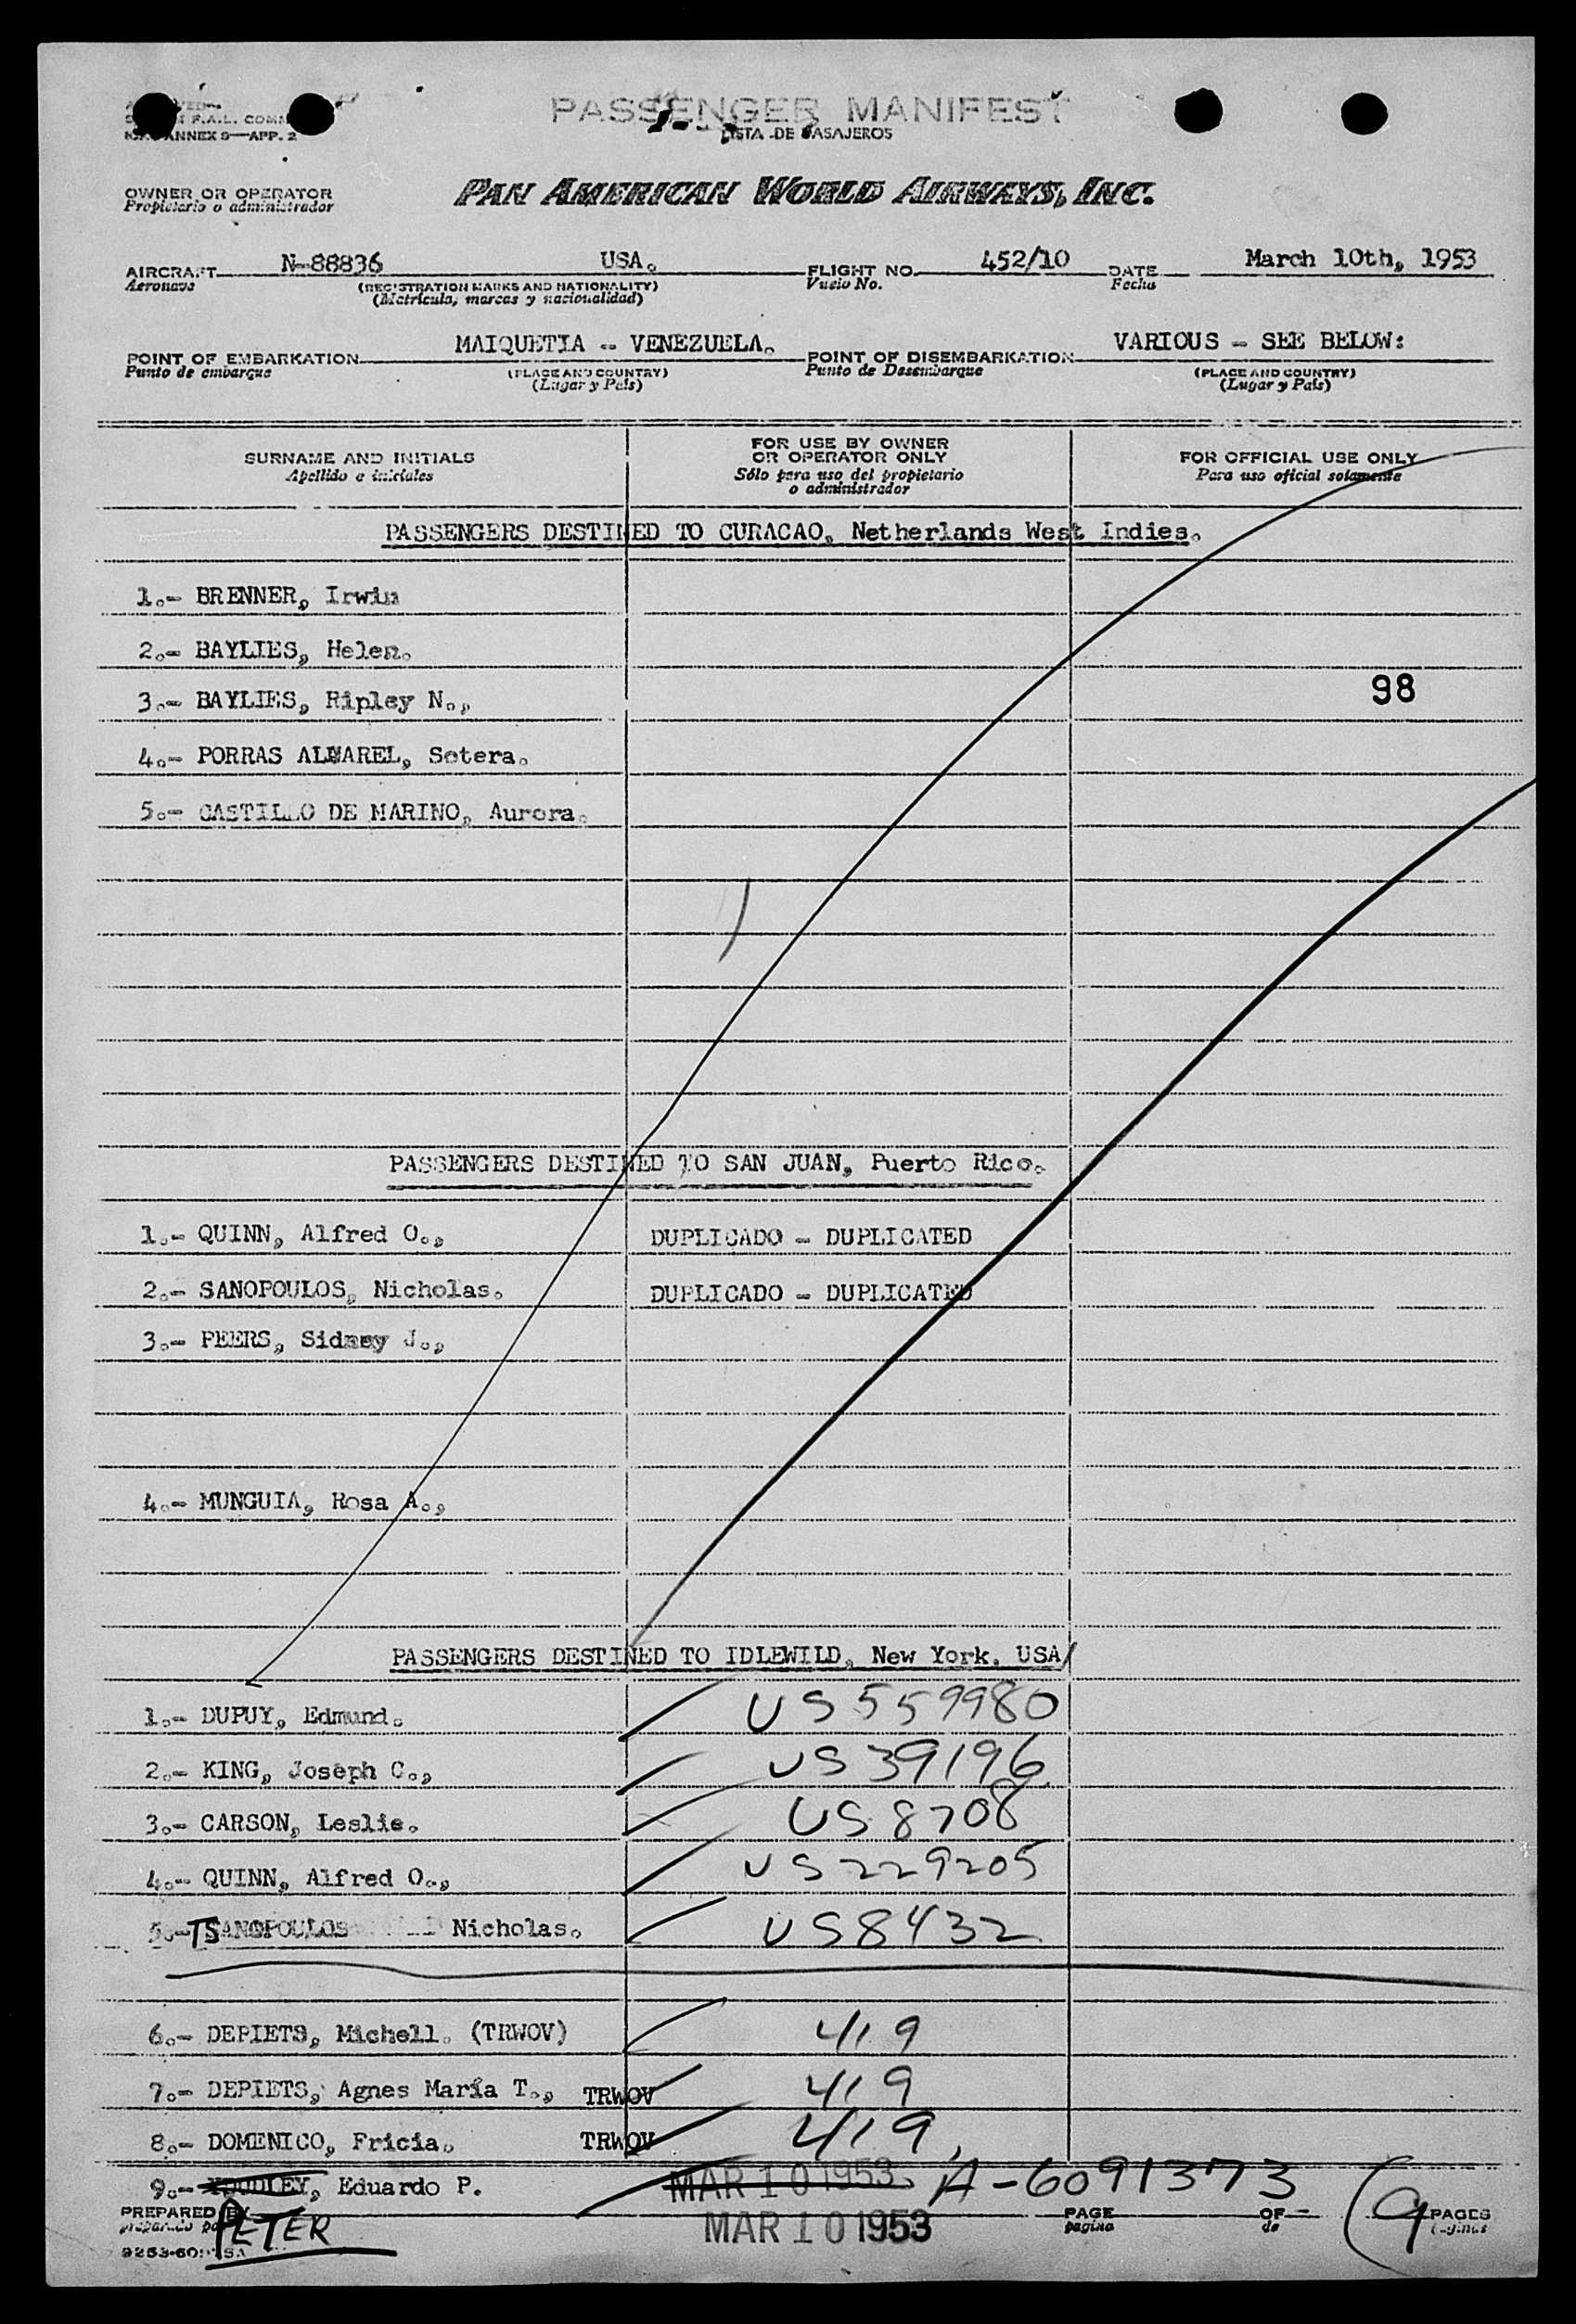 PASSENGER MANIFEST
LISTA DE PASAJEROS
F.A.L. COMM
ANNEX 9—APP. 2
OWNER OR OPERATOR
Propietario o administrador
PAN AMERICAN WORLD AIRWAYS, INC.
AIRCRAFT N-88836 USA. FLIGHT NO. 452/10 DATE March 10th, 1953
Aeronave (REGISTRATION MARKS AND NATIONALITY) Vuelo No. Fecha
(Matrícula, marcas y nacionalidad)
POINT OF EMBARKATION MAIQUETIA -- VENEZUELA. POINT OF DISEMBARKATION VARIOUS - SEE BELOW:
Punto de embarque (PLACE AND COUNTRY) Punto de Desembarque (PLACE AND COUNTRY)
(Lugar y País) (Lugar y País)
SURNAME AND INITIALS
Apellido e iniciales
FOR USE BY OWNER
OR OPERATOR ONLY
Sólo para uso del propietario
o administrador
FOR OFFICIAL USE ONLY
Para uso oficial solamente
PASSENGERS DESTINED TO CURACAO, Netherlands West Indies.
1.- BRENNER, Irwin
2.- BAYLIES, Helen.
3.- BAYLIES, Ripley N., 98
4.- PORRAS ALMAREL, Sotera.
5.- CASTILLO DE MARINO, Aurora.
PASSENGERS DESTINED TO SAN JUAN, Puerto Rico.
1.- QUINN, Alfred O., DUPLICADO - DUPLICATED
2.- SANOPOULOS, Nicholas. DUPLICADO - DUPLICATED
3.- PEERS, Sidney J.,
4.- MUNGUIA, Rosa A.,
PASSENGERS DESTINED TO IDLEWILD, New York, USA/
1.- DUPUY, Edmund. US 559980
2.- KING, Joseph C., US 39196
3.- CARSON, Leslie. US 8708
4.- QUINN, Alfred O., US 229205
5.- TSANOPOULOS Nicholas. US 8432
6.- DEPIETS, Michell. (TRWOV) 419
7.- DEPIETS, Agnes María T., TRWOV 419
8.- DOMENICO, Fricia. TRWOV 419
9.- Eduardo P. MAR 10 1953 A-6091373
PREPARED BY PETER MAR 10 1953 PAGE OF 9 PAGES
preparado por página de páginas